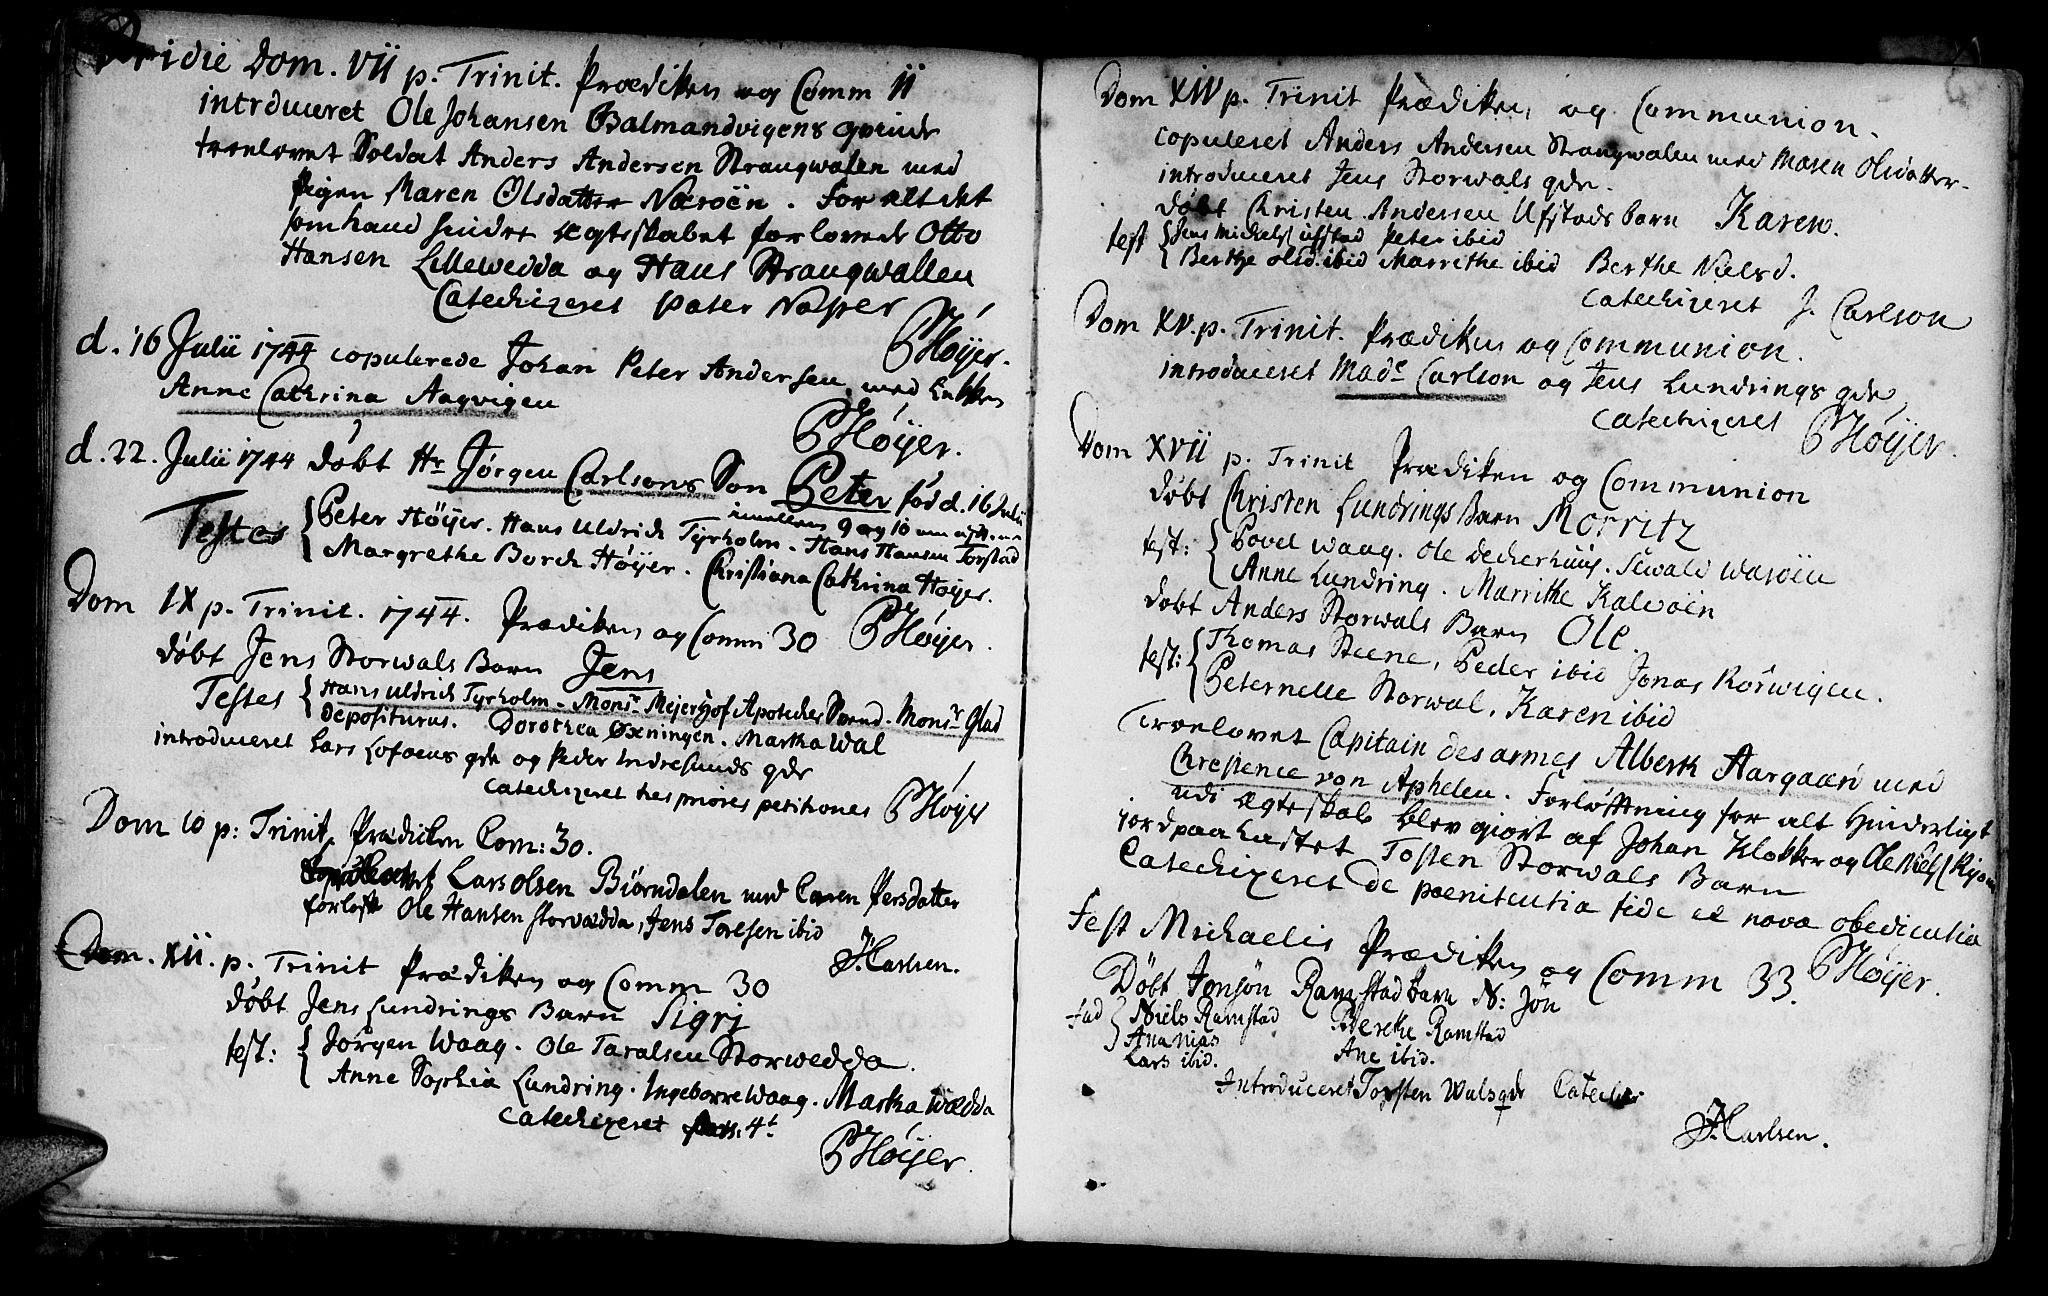 Pridie Dom. VII p. Trinit. Prædiken og Comm 11
introduceret Ole Johansen Balmandvigens qvinde
troelovet Soldat Anders Andersen Strangwalen med
Pigen Maren Olsdatter Nærøen. For alt det
som hand hindre ægteskabet forlovede Otto
Hansen Lillewedda og Hans Strangwallen
Catechizeret Pater Noster
PHøÿer.
d. 16 Julii 1744 copulerede Johan Peter Andersen med Enken
Anne Cathrina Aagvigen
PHøÿer.
d. 22. Julii 1744 døbt Hr Jørgen Carlsons Søn Peter fød d. 16 Julii
imellem 9 og 10
Testes { Peter Höÿer. Hans Uldrich Tyrholm. Hans Hansen Forstad
Margrethe Borch Høÿer. Christiana Cathrina Høÿer.
Dom IX p. Trinit. 1744. Prædiken og Comm 30 PHøÿer.
døbt Jens Storwals Barn Jens
Testes { Hans Uldrich Tyrholm. Monsr Mejerhof Apotecher Svend. Monsr Glad
Depositurus. Dorothea Øxningen. Martha Wal
introduceret Lars Lofoens qde og Peder Indresunds qde
Catechizeret tres priores petitiones PHøÿer
Dom 10 p: Trinit, Prædicken Com: 30.
Lars Olsen Biørndalen med Caren Persdatter
forlofte Ole Hansen Storvædda, Jens Toresen ibid
J. Carlsen.
Dom. XII. p. Trinit Prædiken og Comm 30
døbt Jens Lundrings Barn Sigri
test: { Jørgen Waag. Ole Taralsen Storwedda.
Anne Sophia Lundring. Ingeborre Waag. Martha Wædda
Catechizeret 4t
PHøÿer.
Dom XIV p. Trinit Prædiken og Communion.
copuleret Anders Andersen Strangwalen med Maren Olsdatter.
introduceret Jens Storwals qde.
døbt Christen Andersen Ufstads barn Karen.
test { Jens Michels: Ufstad Peter ibid
Berthe Olsd. ibid Marrithe ibid Berthe Nielsd.
Catechizeret J. Carlson
Dom XV. p. Trinit. Prædiken og Communion.
introduceret Made Carlson og Jens Lundrings qde
Catechizeret PHøÿer.
Dom XVII p. Trinit Prædiken og Communion
døbt Christen Lundrings Barn Morritz
test: { Povel Waag. Ole Deckerhuus. Sewald Warøen
Anne Lundring. Marrithe Kalvøen
døbt Anders Storwals Barn Ole.
test: { Thomas Steene, Peder ibid Jonas Rörwigen.
Peternelle Storwal. Karen ibid
Troelovet Capitain des armes Alberth Aargaard med
Chrestence von Aphelen. Forløftning for alt Hinderligt
udi Ægteskab blev giort af Johan Klokker og Ole Niels:
jordpaakastet Tosten Storwals Barn
Catechizeret De poenitentia fide et nova obedientia
Fest Michaelis Prædiken og Comm 33. PHøÿer.
Döbt Jonsön Ramstad barn N: Jön
fad } Niels Ramstad Berethe Ramstad
Ananias Ane ibid.
Lars ibid.
Introduceret Torsten Walsqde Catechi:
J. Carlsen.